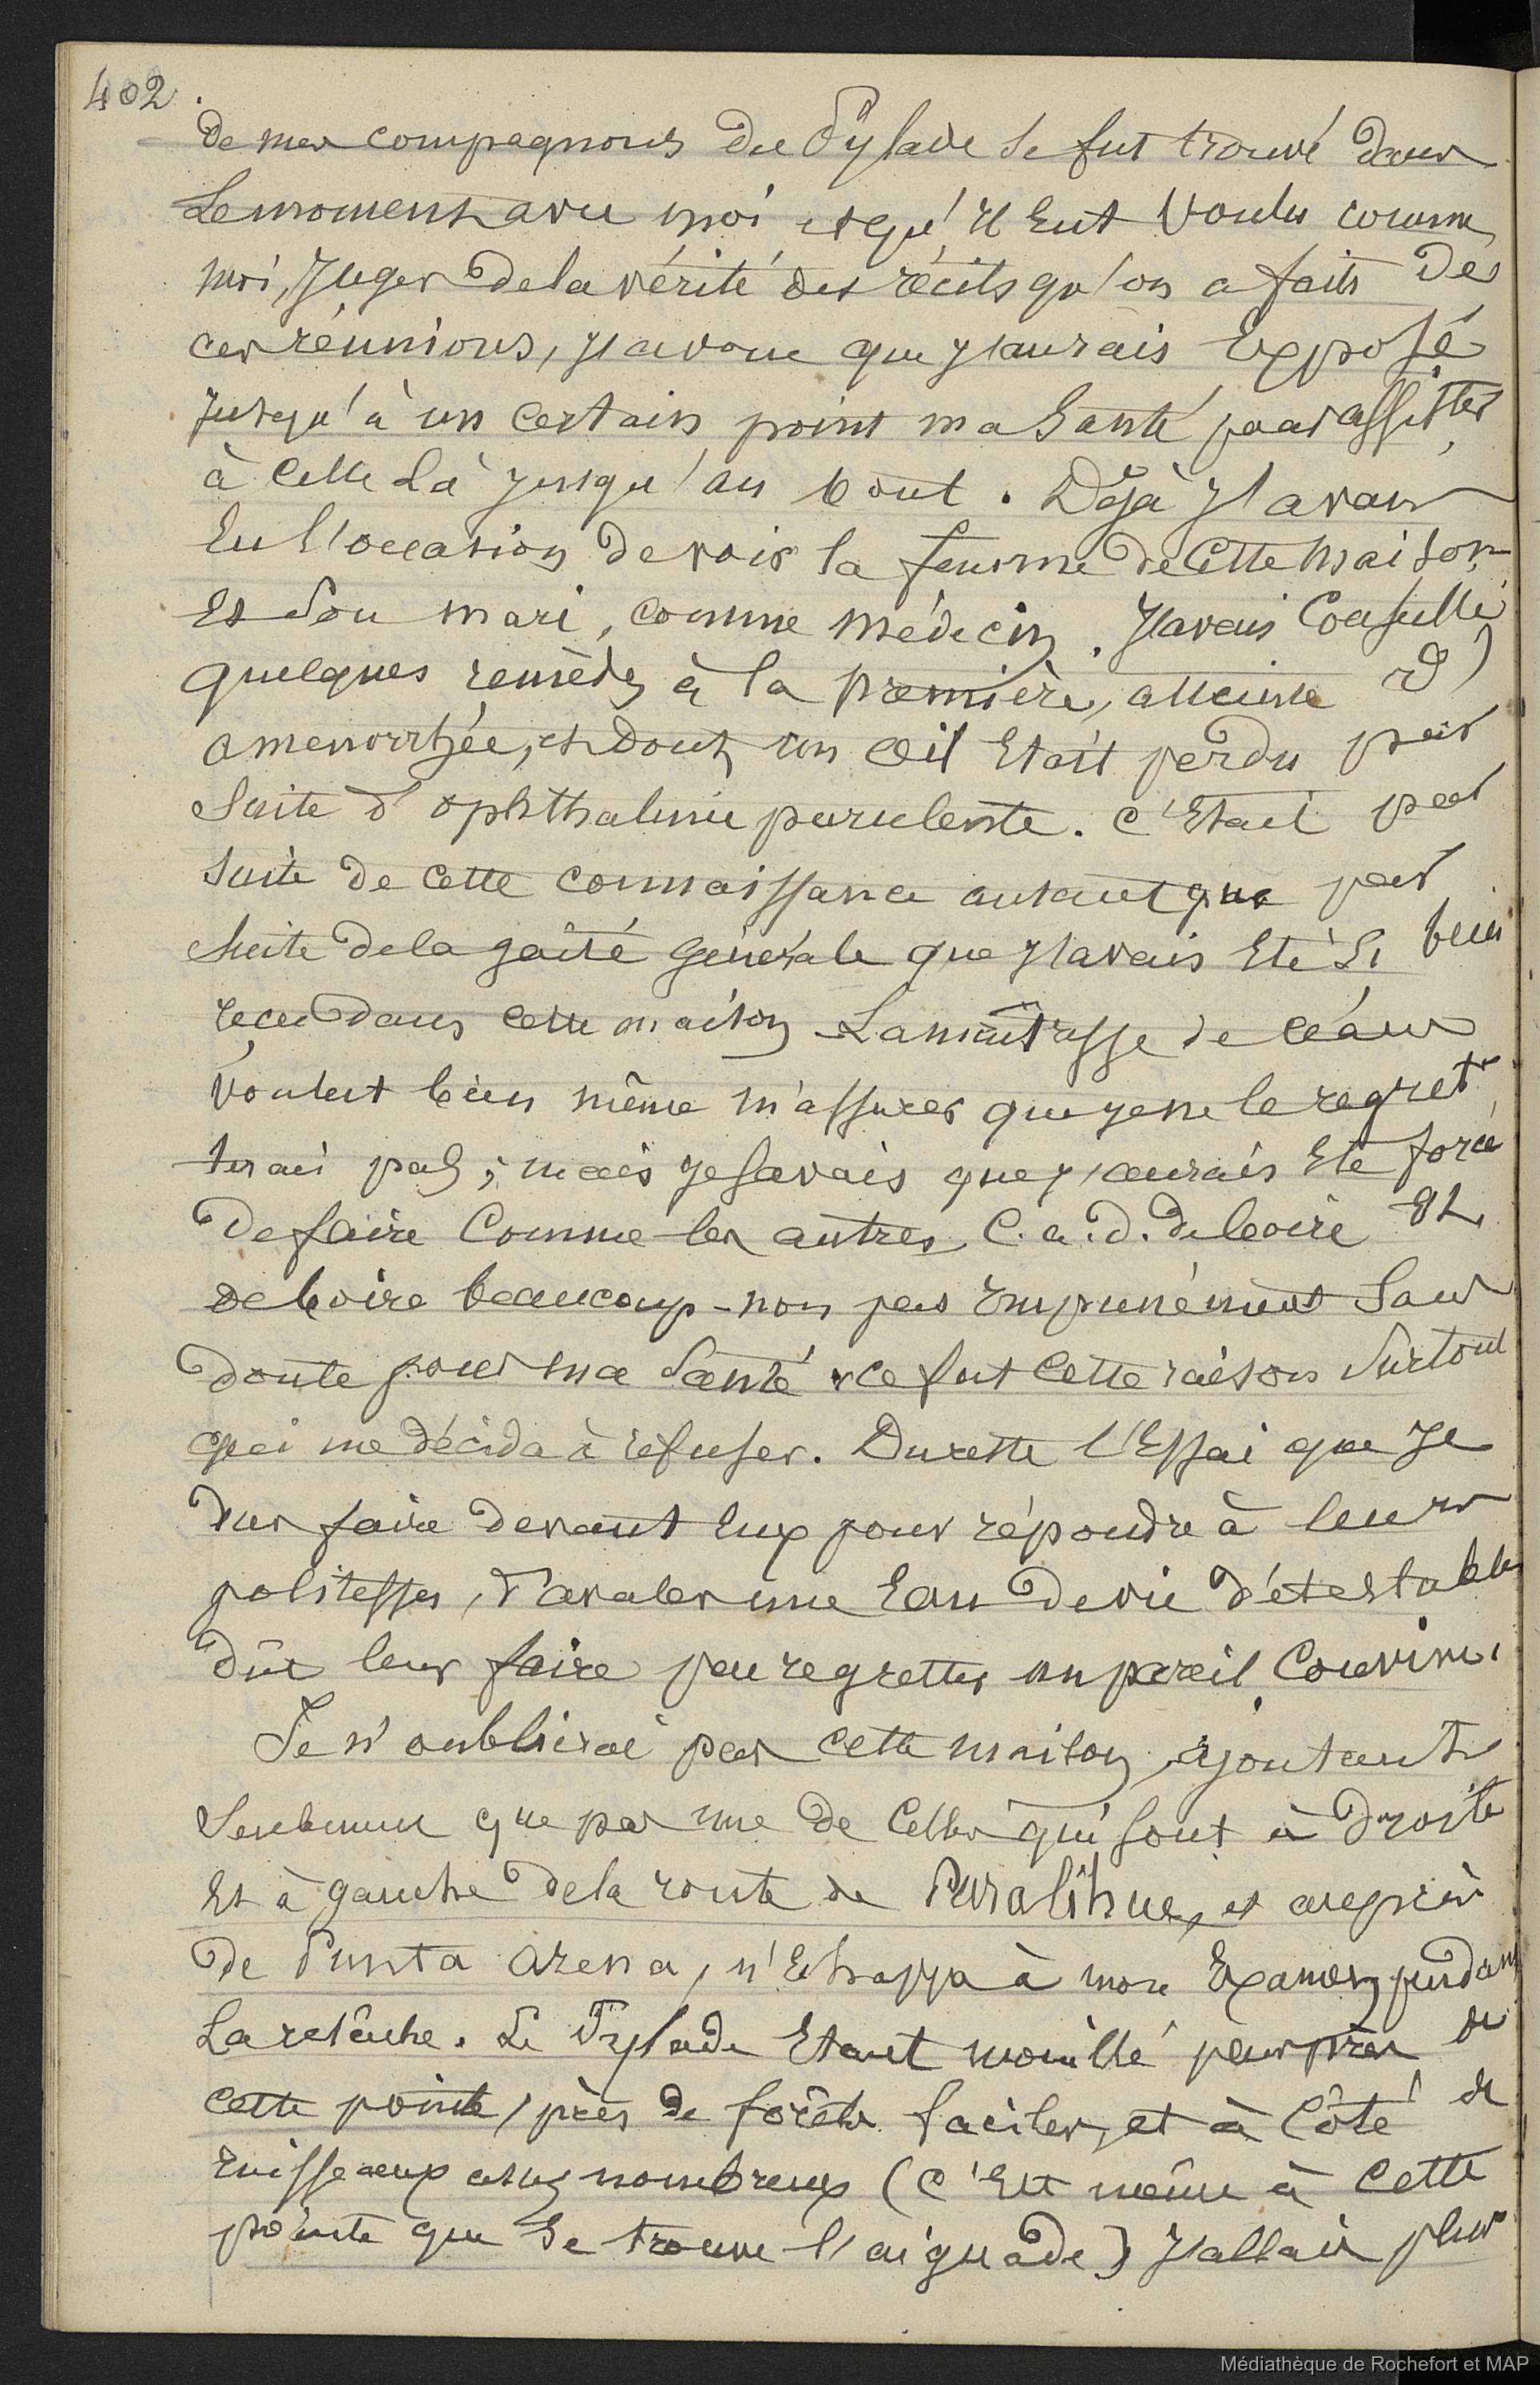 402.
de mes compagnons du Pylade se fut trouvé dans
le moment avec moi et qu'il eut voulu comme
moi, juger de la vérité des récits qu'on a faits de
ces réunions, j'avoue que j'aurais exposé
jusqu'à un certain point ma santé pour assister
à celle là jusqu'au bout. Déjà j'avais
eu l'occasion de voir la femme de cette maison
et son mari, comme médecin. J'avais conseillé
quelques remèdes à la première, atteinte d'
amenorrhée, et dont un œil etait perdu par
suite d'ophthalmie purulente. C'etait par
suite de cette connaissance autant que par
suite de la gaité générale que j'avais eté si bien
recu dans cette maison La maîtresse de céans
voulut bien même m'assurer que je ne le regret
terais pas; mais je savais que j'aurais eté forcé
de faire comme les autres, c.a.d. de boire et
de boire beaucoup - non pas impunément sans
doute pour ma santé ce fut cette raison surtout
qui me décida à refuser. Du reste l'essai que je
dus faire devant eux pour répondre à leurs
politesses, d'avaler une eau de vie détestable
dut leur faire peu regretter un pareil convive.
Je n'oublirai pas cette maison, ajoutant
seulement que pas une de celles qui sont à droite
et à gauche de la route de Puralihue, et auprès
de Punta Arena, n'echappa à mon examen pendant
la relâche. Le Pylade etant mouillé peu près de
cette pointe, près de forêts faciles, et à côté de
ruisseaux assez nombreux (c'est même à cette
pointe que se trouve l'aiguade) j'allais plus
Médiathèque de Rochefort et MAP